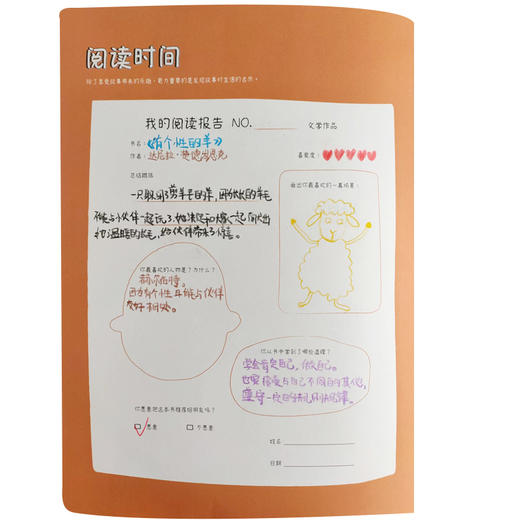 阅读时间
除了享受故事带来的乐趣，更为重要的是发现故事对生活的启示。
我的阅读报告 NO.
文学作品
书名：《有个性的羊》
作者：达尼拉·楚德岑思克
喜爱度：
总结概括
画出你最喜欢的一幕场景：
一只取间了剪羊毛的羊，因为长长的羊毛
不能与小伙伴一起玩了。她决定和 一起 出
温暖的长毛，给伙伴带来了惊喜。
你最喜欢的人物是？为什么？
希尔伯特。
因为有个性 且能与伙伴
友好相处。
你从书中学到了哪些道理？
学会肯定自己，做自己。
也要接受与自己不同的其他，
遵守一定的 规律
你愿意把这本书推荐给朋友吗？
愿意
不愿意
姓名
日期